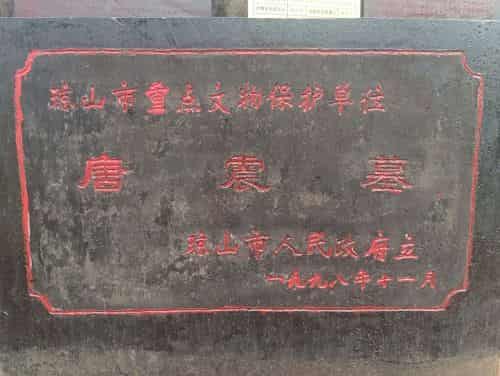 琼山市重点文物保护单位
唐震墓
琼山市人民政府立
一九九八年十一月